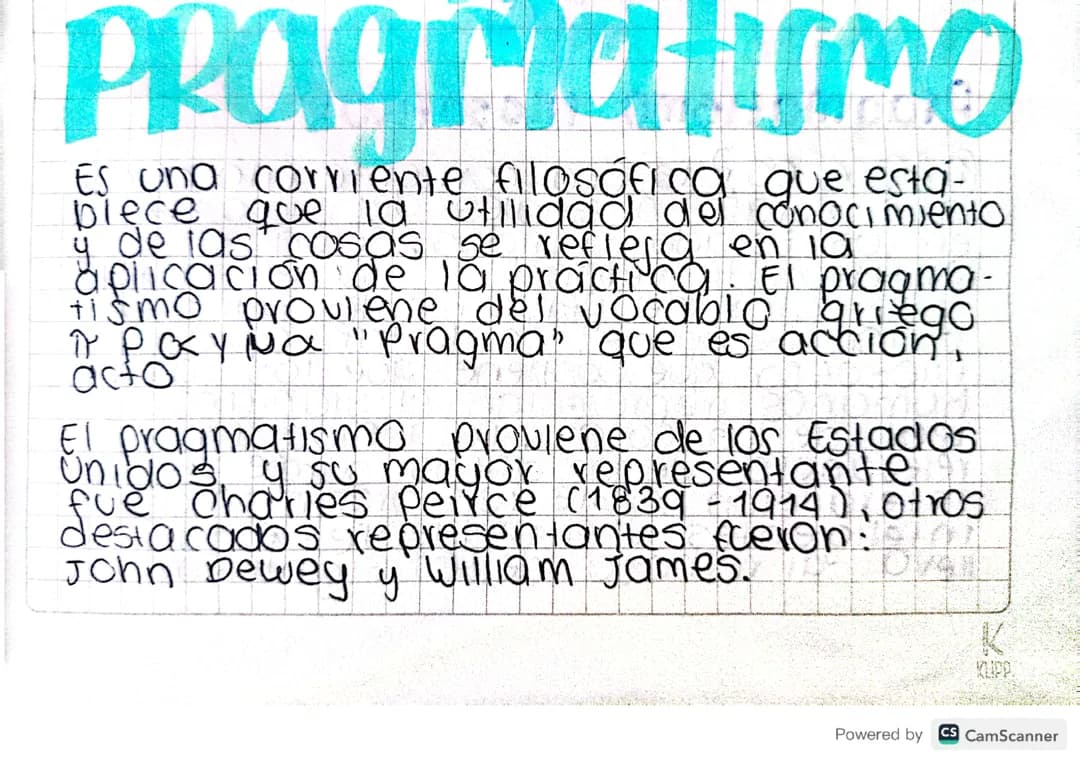 PRagmatismo
Es una corriente filosófica que esta-
blece que la utilidad del conocimiento
y de las cosas se refleja en la
aplicación de la práctica. El pragma-
tismo proviene del vocablo griego
πραγμα "Pragma" que es acción,
acto
El pragmatismo proviene de los Estados
Unidos y su mayor representante
fue Charles Peirce (1839-1914), otros
destacados representantes fueron:
John Dewey y William James.
K
KLIPP.
Powered by CS CamScanner